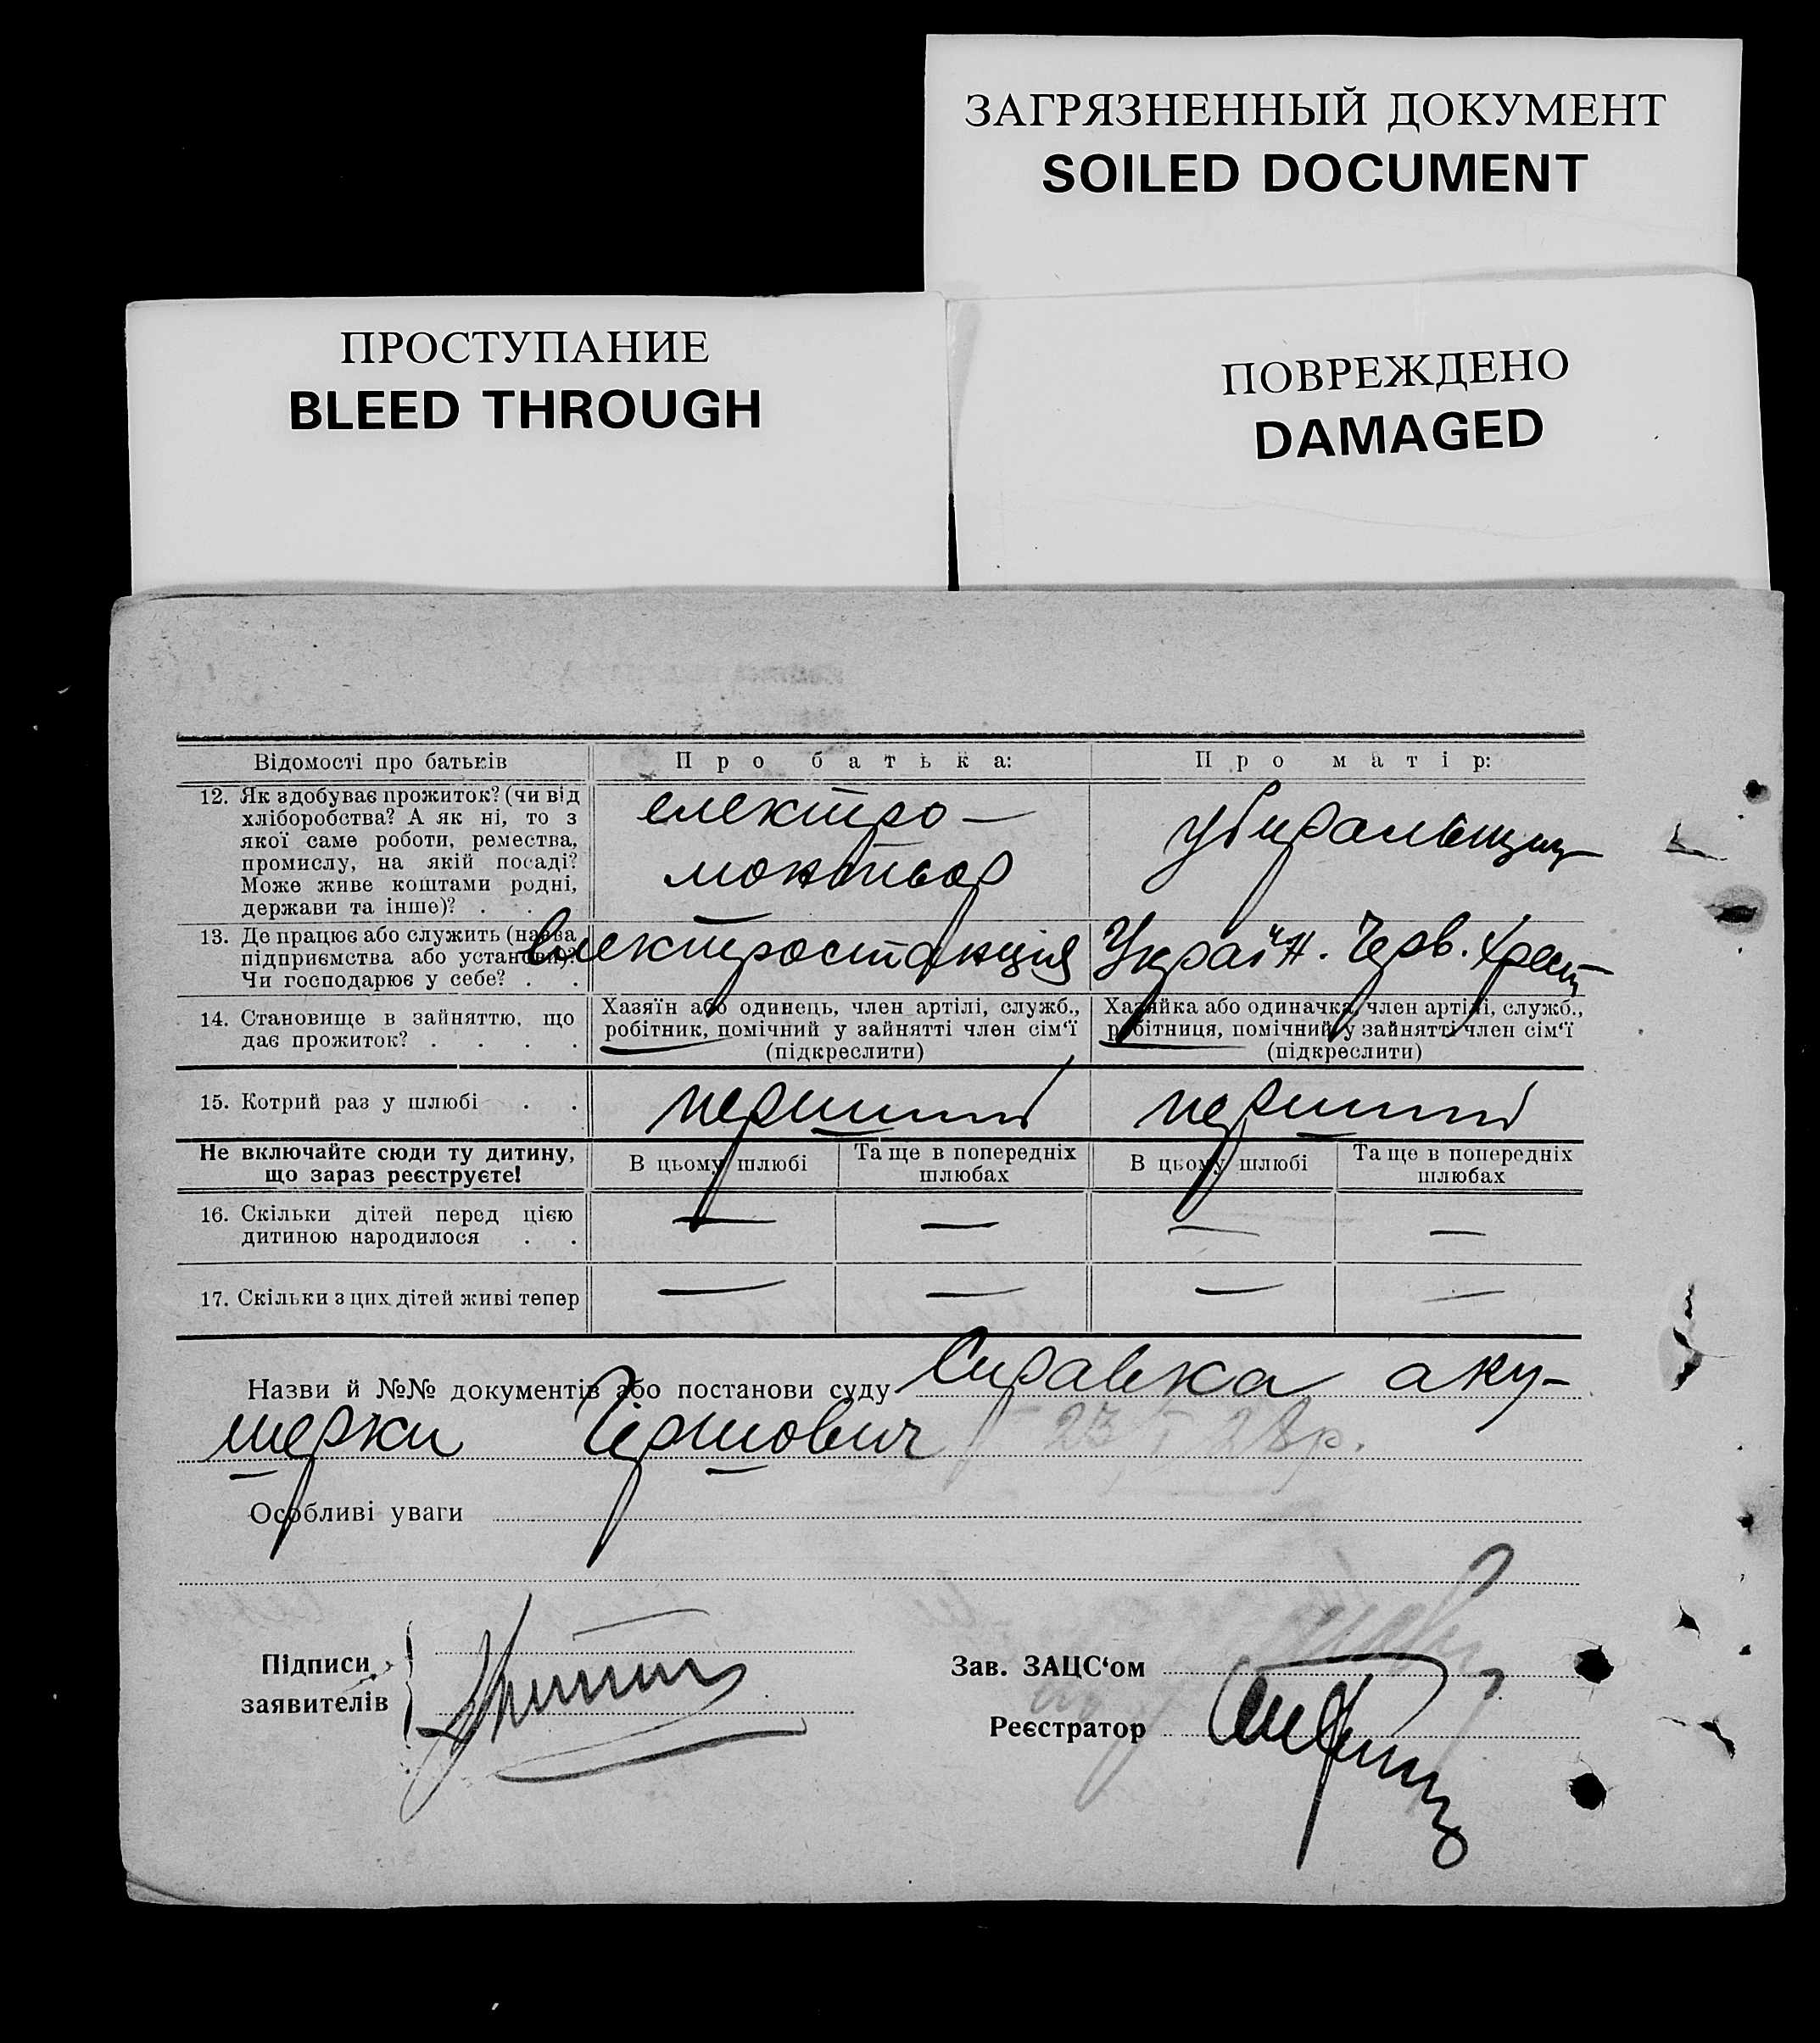 ЗАГРЯЗНЕННЫЙ ДОКУМЕНТ
SOILED DOCUMENT
ПРОСТУПАНИЕ
BLEED THROUGH
ПОВРЕЖДЕНО
DAMAGED
Відомості про батьків
Про батька:
Про матір:
12. Як здобуває прожиток? (чи від
хліборобства? А як ні, то з
якої саме роботи, ремества,
промислу, на якій посаді?
Може живе коштами родні,
держави та інше)? . . .
електро-
монтьор
убиральщиц
13. Де працює або служить (назва
підприємства або установи)?
Чи господарює у себе? . .
Електростанція
Україн. Черв. Хрест
14. Становище в зайняттю, що
дає прожиток? . . . .
Хазяїн або одинець, член артілі, служб.,
робітник, помічний у зайнятті член сім‘ї
(підкреслити)
Хазяйка або одиначка, член артілі, служб.,
робітниця, помічний у зайнятті член сім‘ї
(підкреслити)
15. Котрий раз у шлюбі . .
перший
перший
Не включайте сюди ту дитину,
що зараз реєструєте!
В цьому шлюбі
Та ще в попередніх
шлюбах
В цьому шлюбі
Та ще в попередніх
шлюбах
16. Скільки дітей перед цією
дитиною народилося . .
— — — —
17. Скільки з цих дітей живі тепер
— — — —
Назви й №№ документів або постанови суду Справка аку-
шерки Гершович 23/I 28р.
Особливі уваги
Підписи
заявителів
Зав. ЗАЦС‘ом
Реєстратор